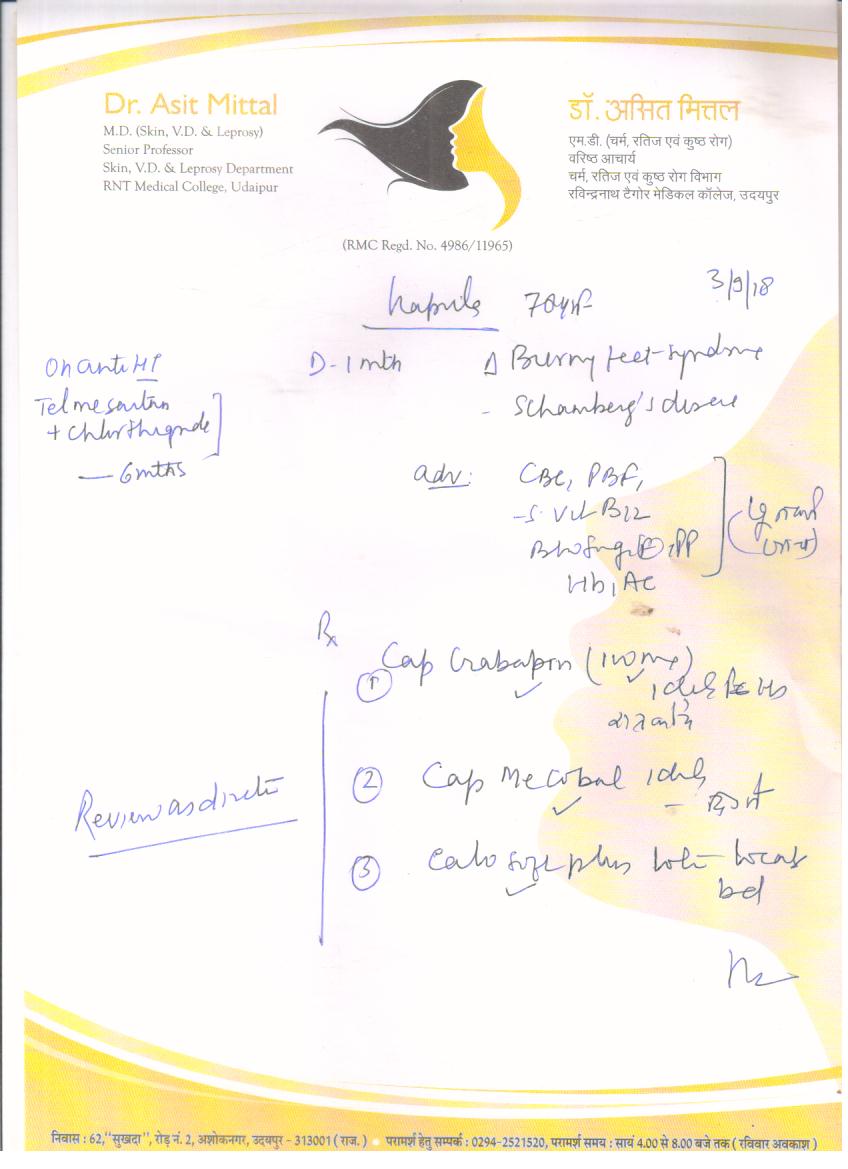 Dr. Asit Mittal
M.D. (Skin, V.D. & Leprosy)
Senior Professor
Skin, V.D. & Leprosy Department
RNT Medical College, Udaipur
डॉ. असित मित्तल
एम.डी. (चर्म, रतिज एवं कुष्ठ रोग)
वरिष्ठ आचार्य
चर्म, रतिज एवं कुष्ठ रोग विभाग
रविन्द्रनाथ टैगोर मेडिकल कॉलेज, उदयपुर
(RMC Regd. No. 4986/11965)
3/9/18
70yr
On anti HT
Telmesartan
+ Chlorthiazide
— 6mths
D - 1 mth
Δ Burning feet syndrome
- Schamberg's disease
adv: CBC, PBF,
- S. Vit B12
Blood Sugar (F), PP
Hb, AC
Rx
① Cap (100mg)
HS
② Cap Mecobal
③ Calosoft plus
bd
Review as directed
निवास : 62,"सुखदा", रोड़ नं. 2, अशोकनगर, उदयपुर - 313001 ( राज. ) • परामर्श हेतु सम्पर्क : 0294-2521520, परामर्श समय : सायं 4.00 से 8.00 बजे तक ( रविवार अवकाश )